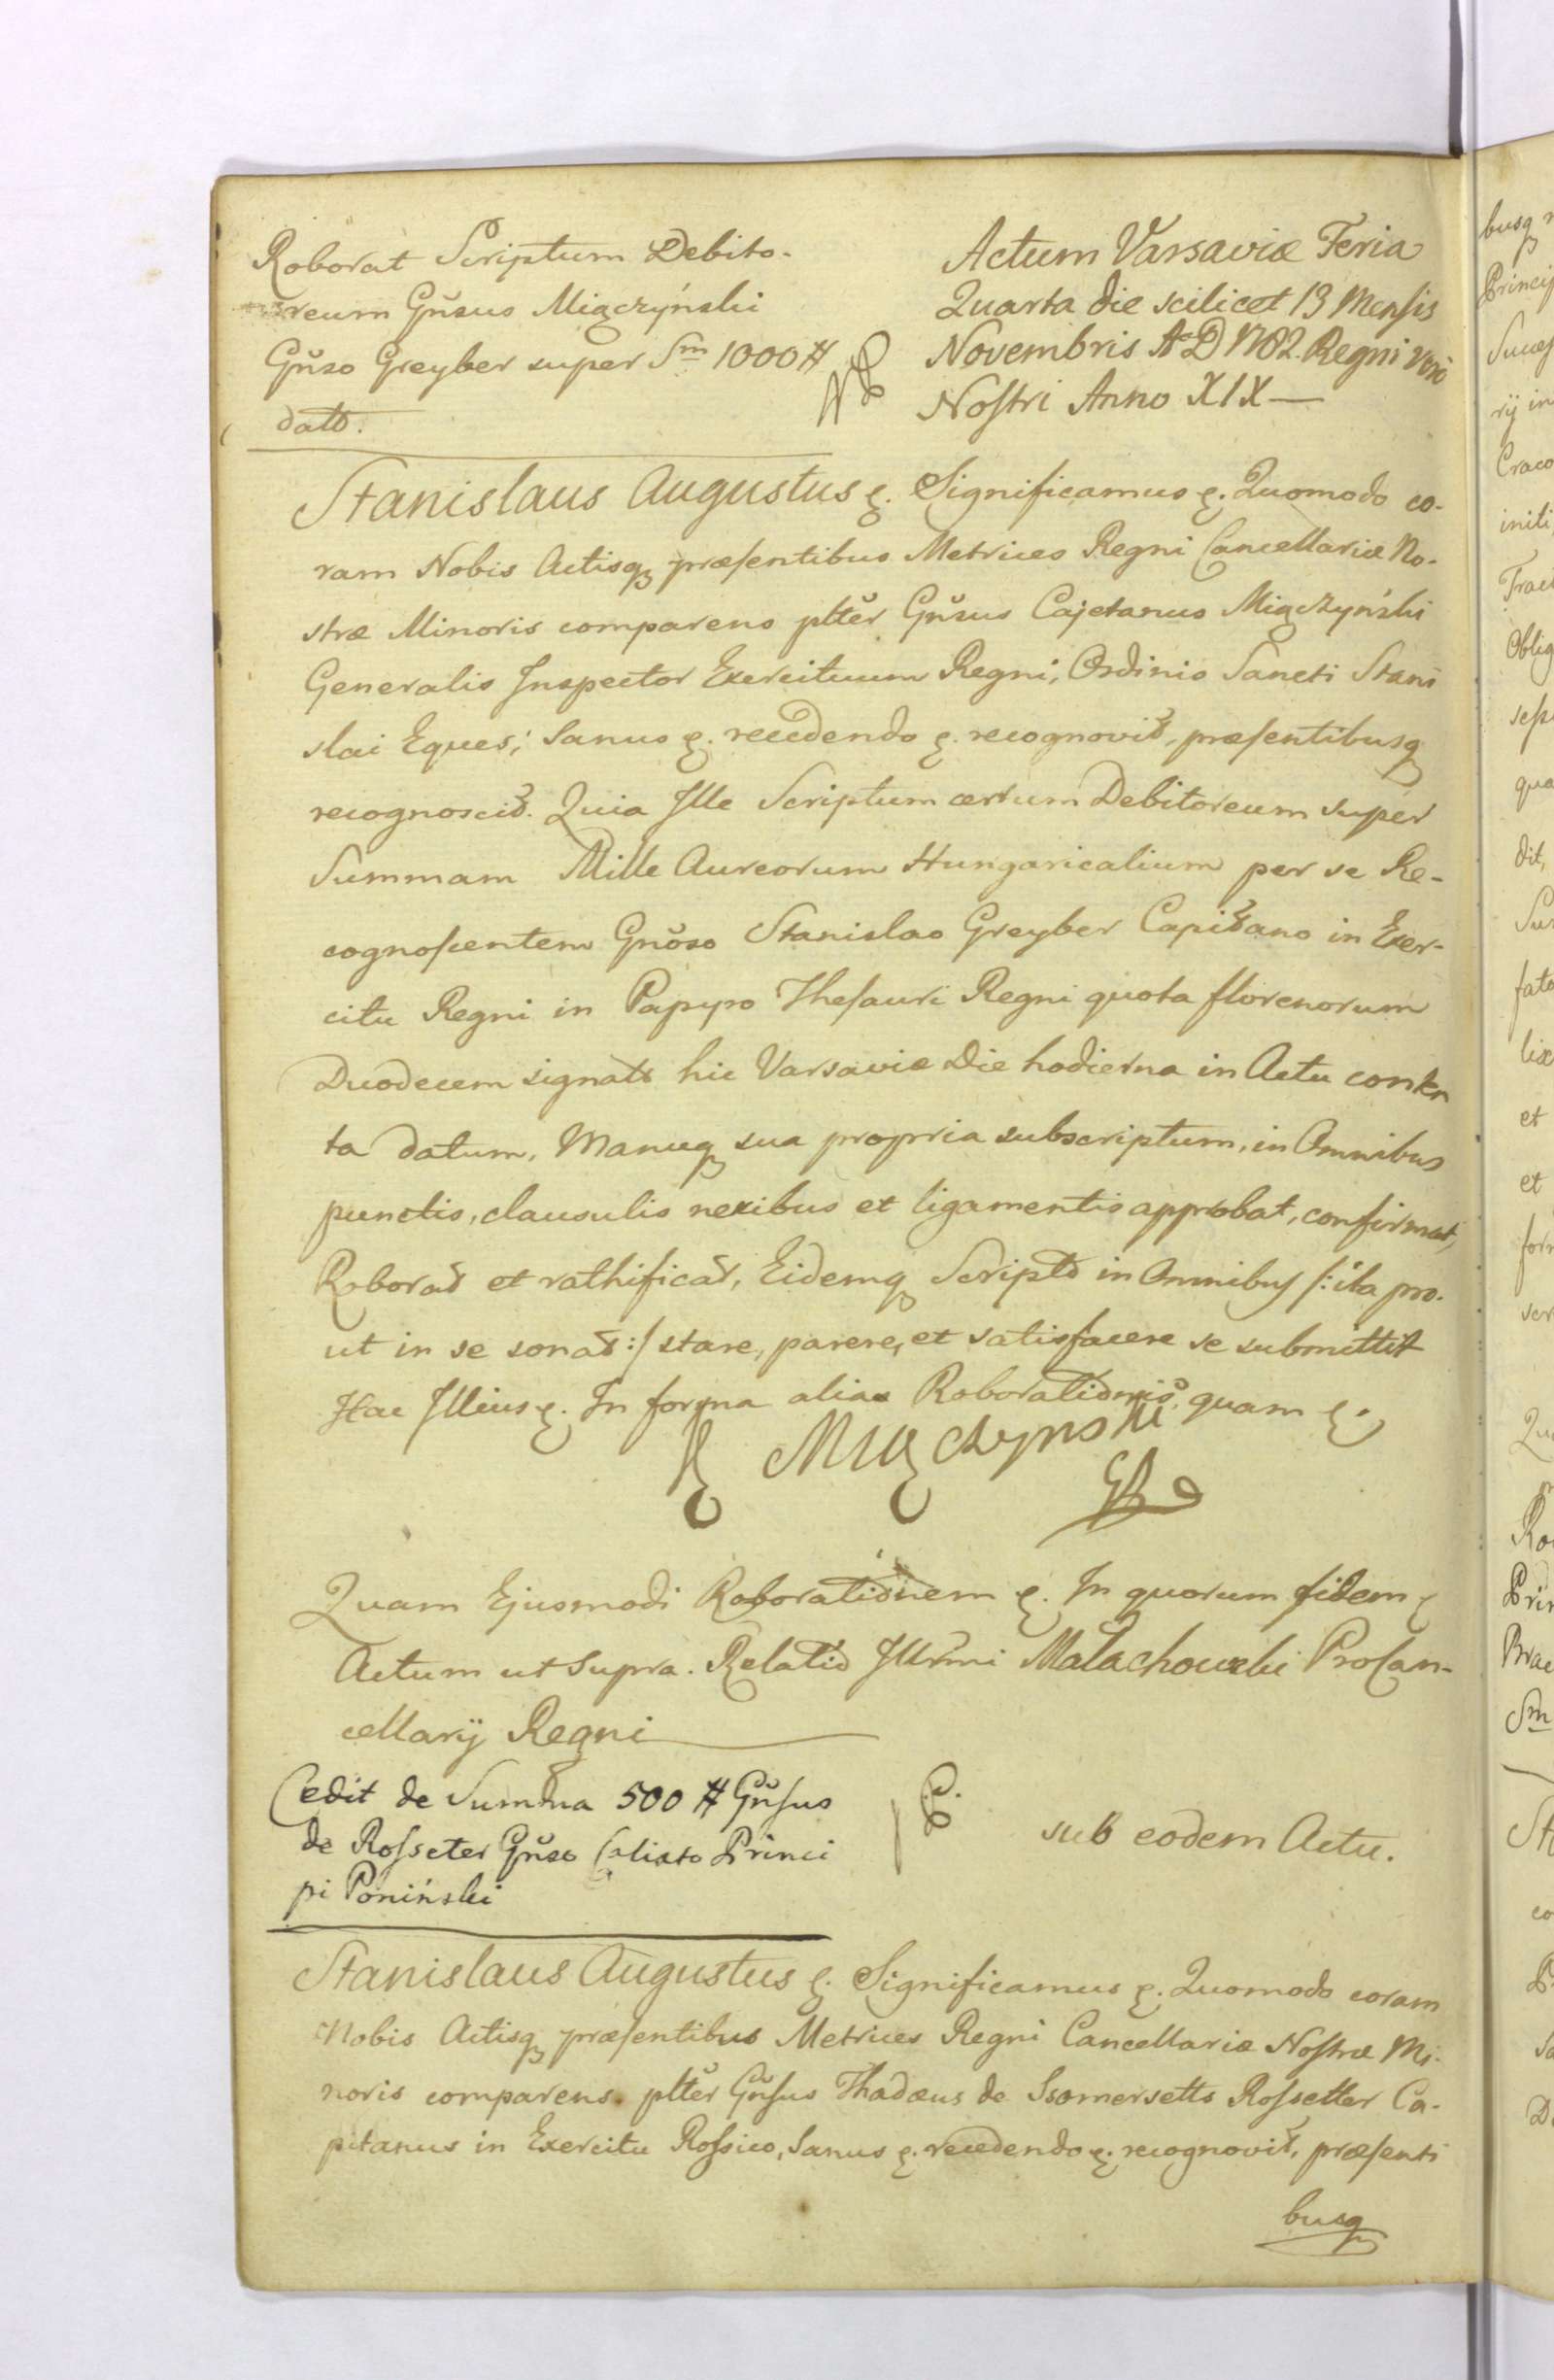 Roborat Scriptum Debito-
reum Gn̆sus Miączyński
Gn̆so Greyber super Sm̲ 1000 #
datt.
Actum Varsaviæ Feria
Quarta die scilicet 13 Menſis
Novembris A D 1782. Regni vero
Noſtri Anno XIX —
Stanislaus Augustus &. Significamus &. Quomodo co-
ram Nobis Actisq præſentibus Metrices Regni Cancellariæ No-
stræ Minoris comparens pltĕr Gn̆sus Cajetanus Miączyński
Generalis Inspector Exercituum Regni, Ordinis Sancti Stani
slai Eques; Sanus &. recedendo &. recognovit, præſentibusq
recognoscit. Quia Ille Scriptum certum Debitoreum super
Summam Mille Aureorum Hungaricalium per se Re-
cognoſcentem Gn̆oso Stanislao Greyber Capitano in Exer-
citu Regni in Papyro Theſauri Regni quota florenorum
Duodecem signatt hic Varsaviæ Die hodierna in Actu conten
ta datum, Manuq sua propria subscriptum, in Omnibus
punctis, clausulis nexibus et ligamentis approbat, confirmat,
Roborat et rathificat, Eidemq Scripto in Omnibus /: ita pro-
ut in se sonat :/ stare, parere, et satisfacere se submittit
Hac Illius &. In forma alias Roborationis quam &.
Miączynski
Quam Ejusmodi Roborationem &. In quorum fidem &
Actum ut Supra. Relatio Illrm̃i Małachowski ProCan-
cellarij Regni
Cedit de Summa 500 # Gn̆ſus
de Roſseter Gn̆so Calixto Princi
pi Poniński
sub eodem Actu.
Stanislaus Augustus &. Significamus &. Quomodo coram
Nobis Actisq præſentibus Metrices Regni Cancellariæ Noſtræ Mi-
noris comparens pltĕr Gn̆ſus Thadæus de Ssomersetts Roſsetter Ca-
pitanus in Exercitu Roſsico, Sanus &. recedendo &. recognovit, præſenti
busq